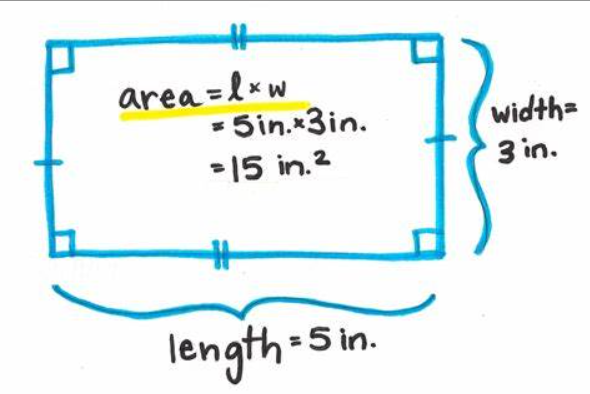 area = l × w
= 5 in. × 3 in.
= 15 in.²
width =
3 in.
length = 5 in.